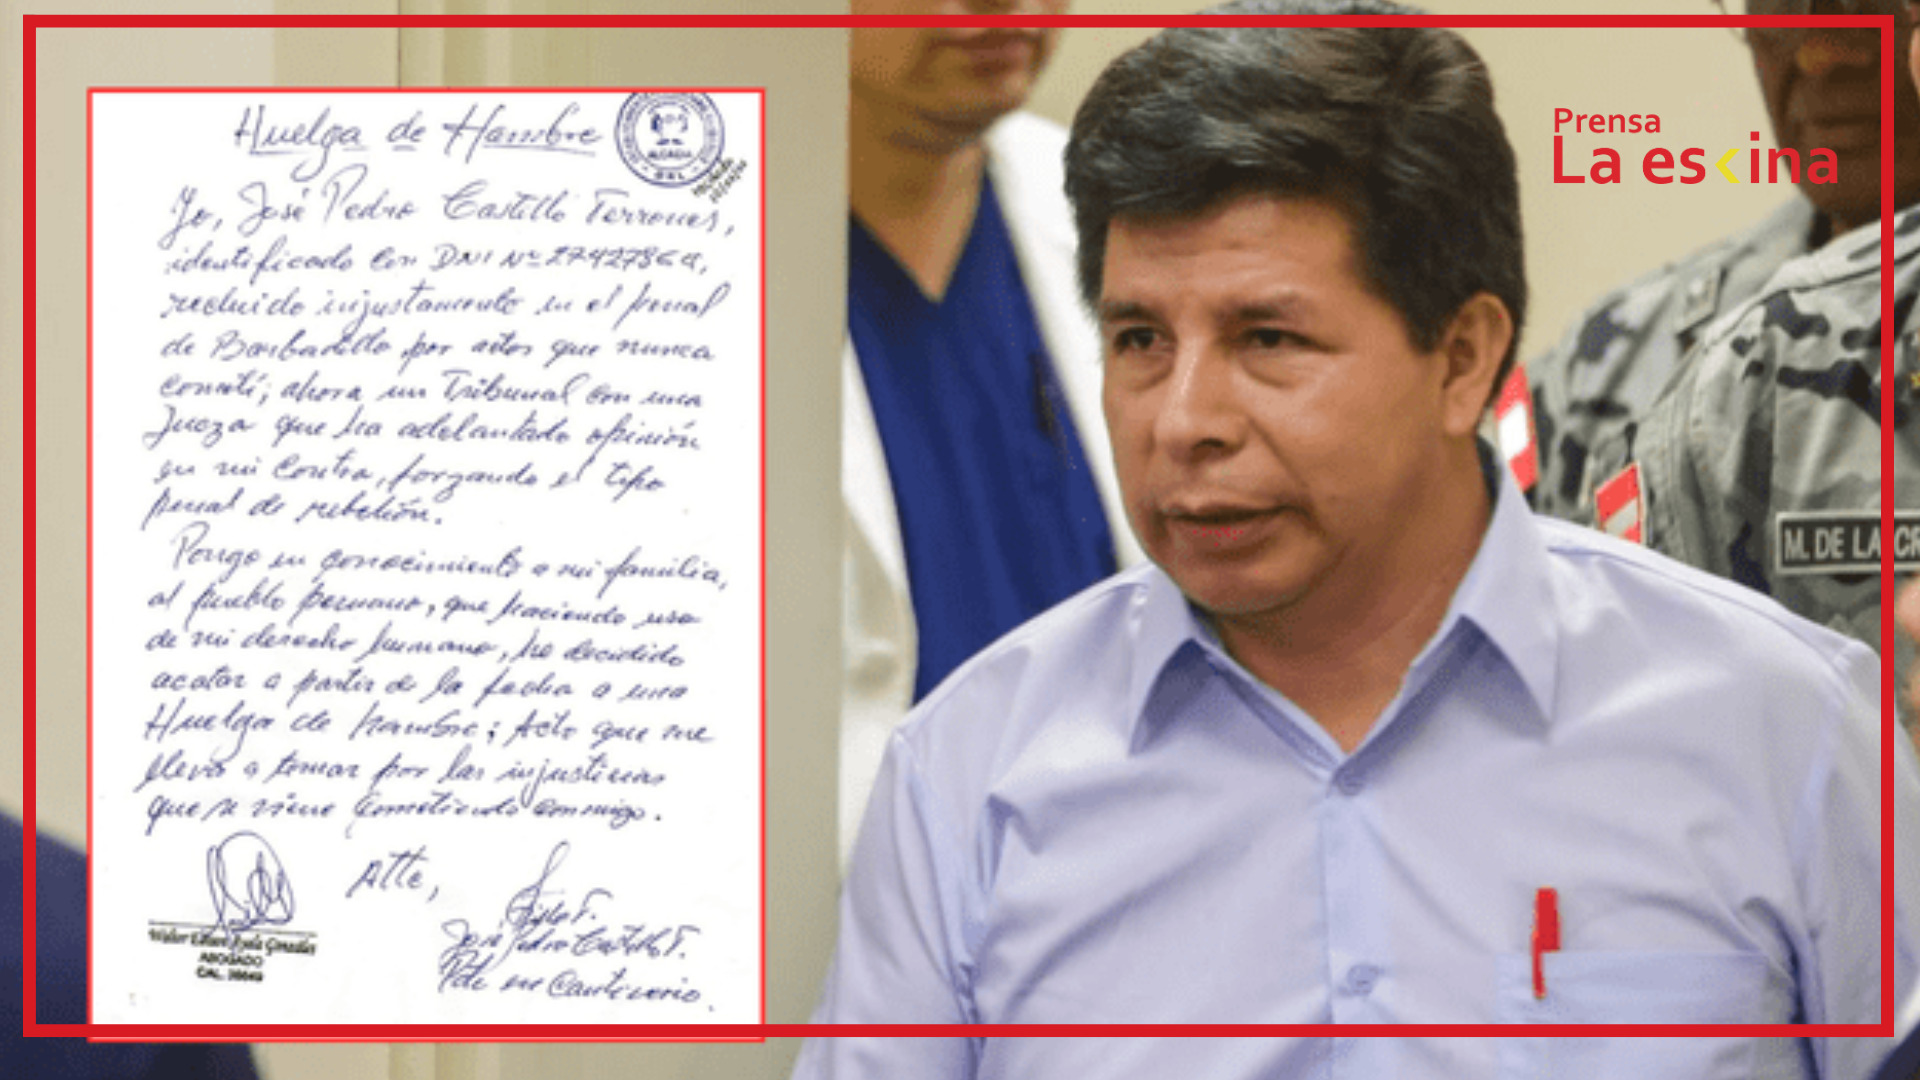 Huelga de Hambre
ALCADIA
CAL
Yo, José Pedro Castillo Terrones,
identificado con DNI Nº
recluido injustamente en el penal
de Barbadillo por actos que nunca
cometí; ahora un Tribunal con una
Jueza que ha adelantado opinión
en mi contra, forzando el tipo
penal de rebelión.
Pongo en conocimiento a mi familia,
al pueblo peruano, que haciendo uso
de mi derecho humano, he decidido
acatar a partir de la fecha a una
Huelga de hambre; Acto que me
lleva a tomar por las injusticias
que se viene cometiendo conmigo.
Atte,
José Pedro Castillo T.
Pdte en Cautiverio.
Walter Edison Ayala Gonzales
ABOGADO
CAL.
Prensa
La es<ina
M. DE LA CR